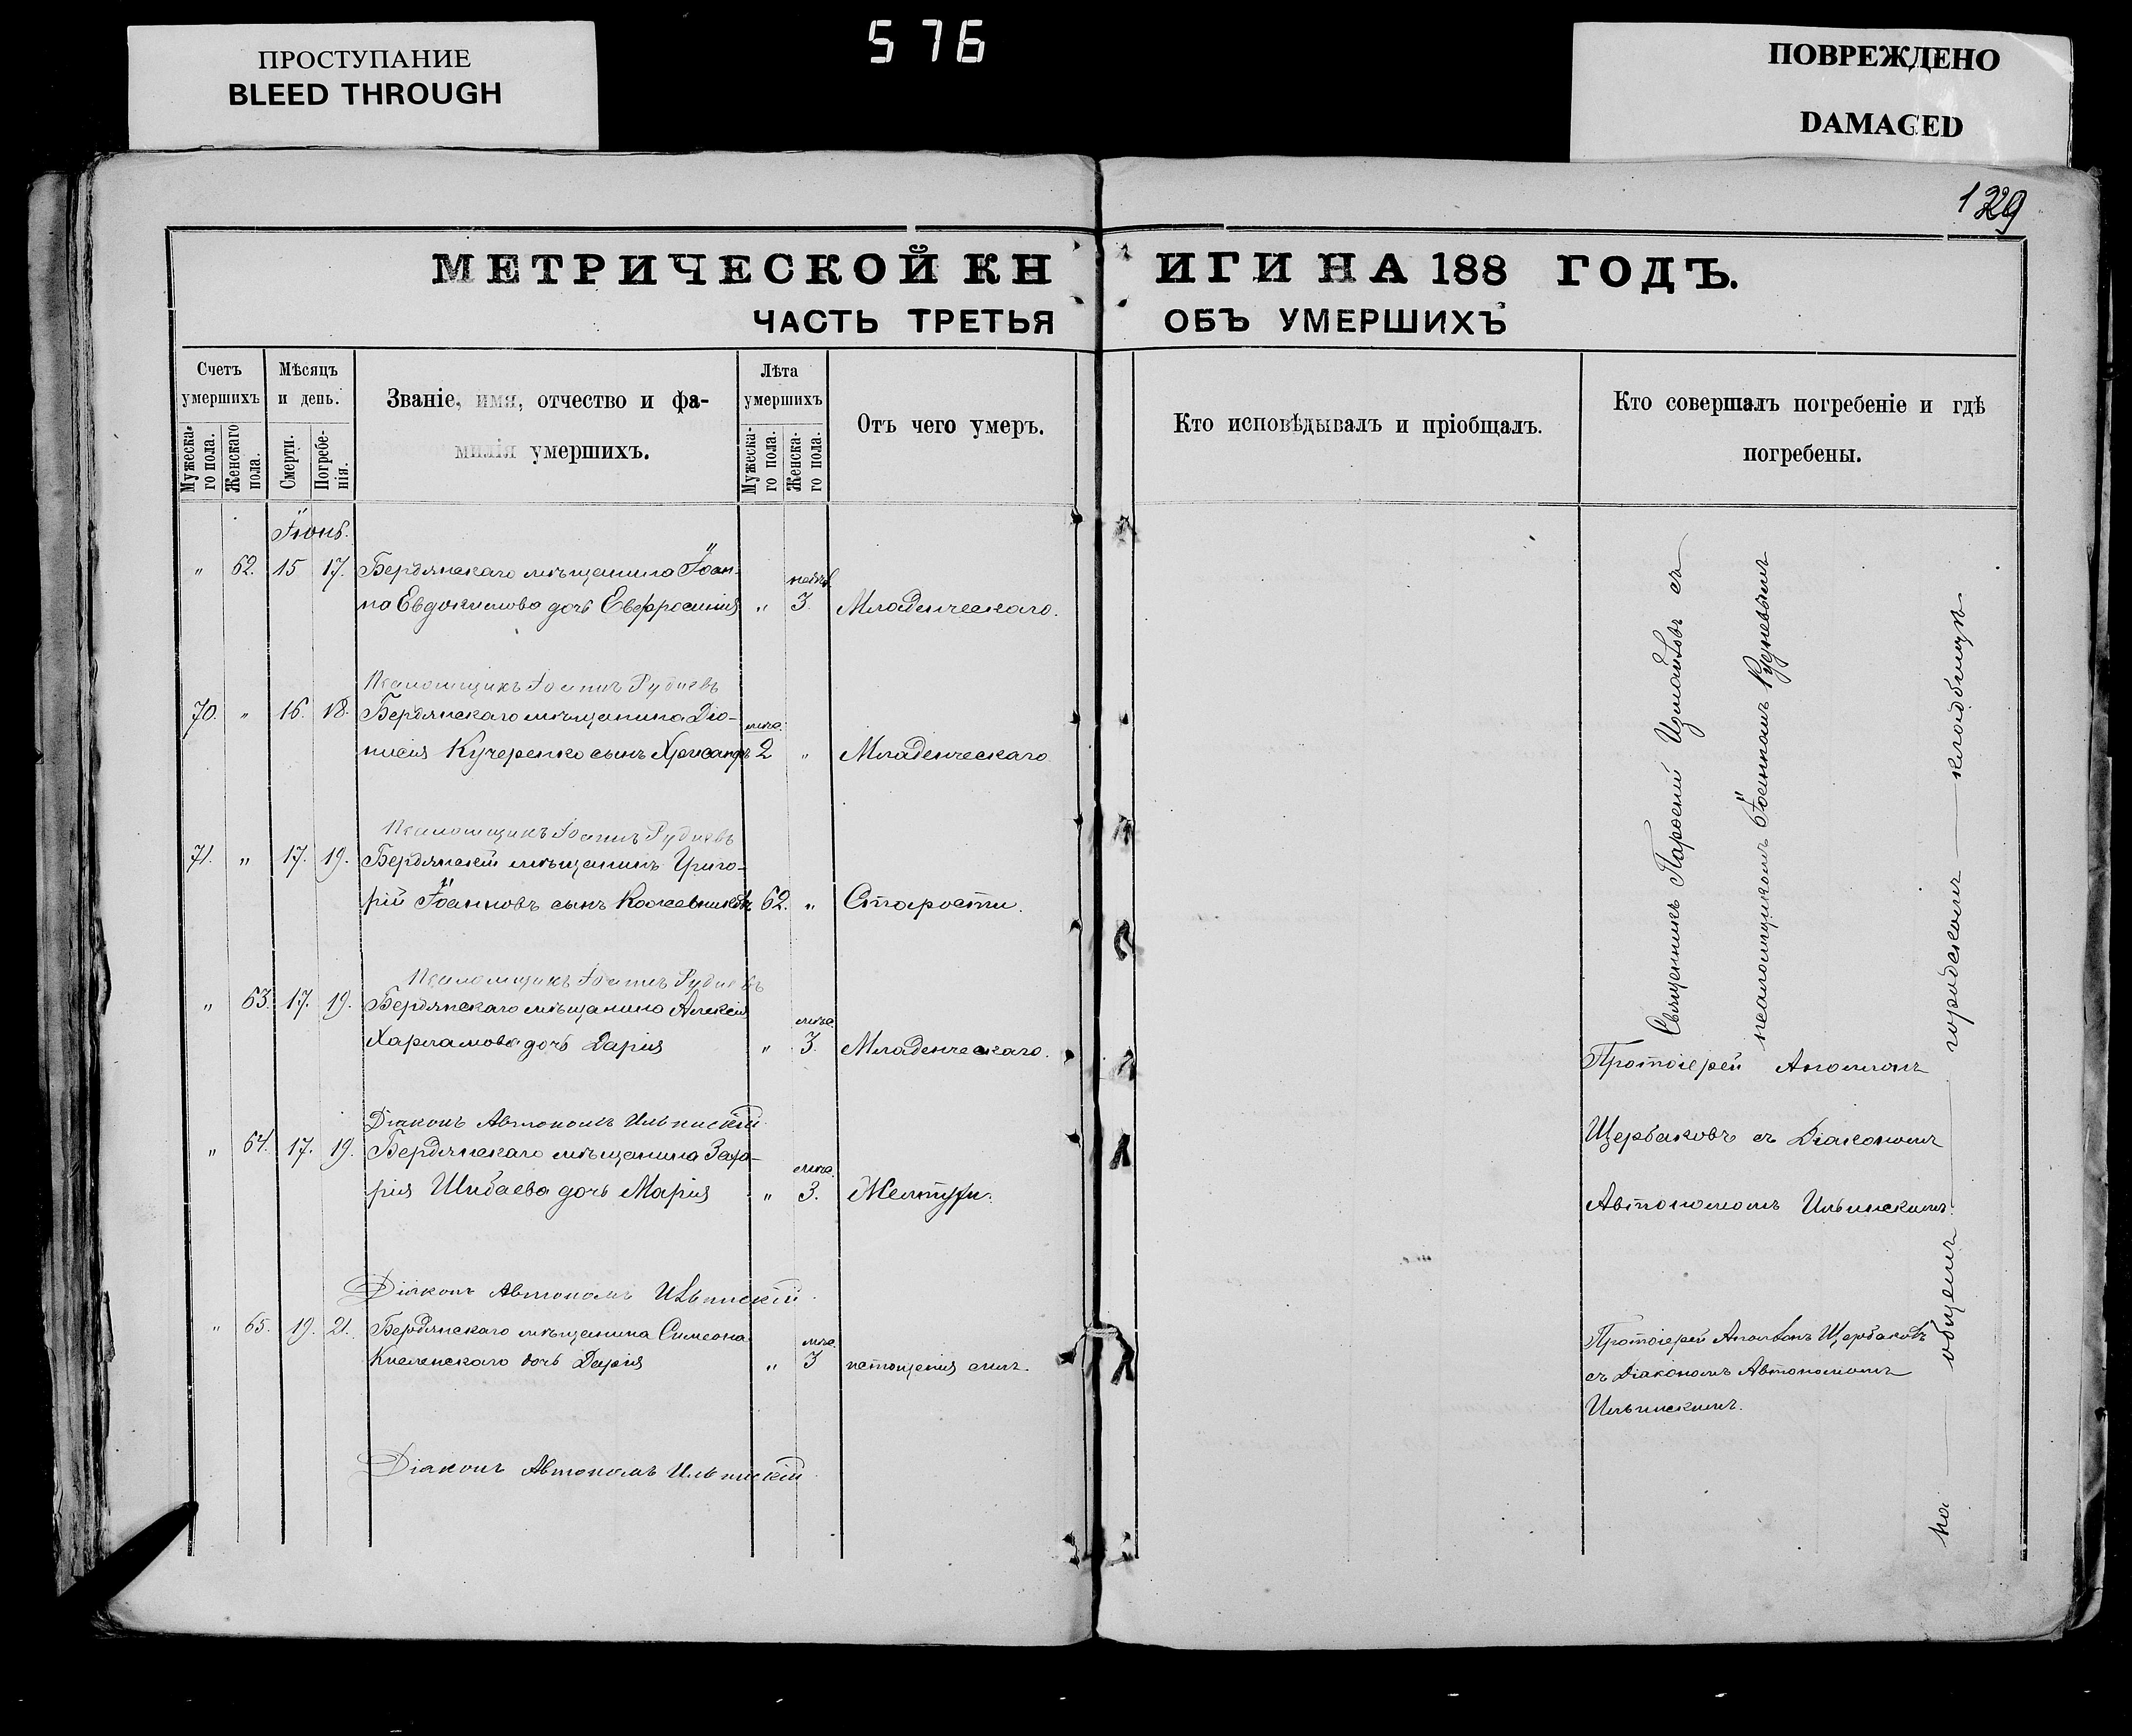 ПРОСТУПАНИЕ
BLEED THROUGH
576
ПОВРЕЖДЕНО
DAMAGED
129
МЕТРИЧЕСКОЙ КНИГИ НА 188 ГОДЪ.
ЧАСТЬ ТРЕТЬЯ ОБЪ УМЕРШИХЪ
Счетъ умершихъ
Мужеска-го пола.
Женскаго пола.
Мѣсяцъ и день.
Смерти.
Погребе-нія.
Званіе, имя, отчество и фа-
милія умершихъ.
Лѣта умершихъ
Мужеска-го пола.
Женска-го пола.
Отъ чего умеръ.
Кто исповѣдывалъ и пріобщалъ.
Кто совершалъ погребеніе и гдѣ
погребены.
Іюнь.
" 62. 15 17. Бердянскаго мѣщанина Іоан-
на Евдокимова дочь Евфросинія " 3. Младенческаго.
Псаломщикъ Іоаннъ Рудневъ
70. " 16. 18. Бердянскаго мѣщанина Діо-
нисія Кучеренко сынъ Хрисанфъ 2 " Младенческаго
Псаломщикъ Іоаннъ Рудневъ
71. " 17. 19. Бердянскій мѣщанинъ Григо-
рій Іоанновъ сынъ Кожевниковъ 62. " Старости.
Псаломщикъ Іоаннъ Рудневъ
" 63. 17. 19. Бердянскаго мѣщанина Алексія
Харламова дочь Дарія " мѣс. 3. Младенческаго.
Діаконъ Автономъ Ильинскій
" 64. 17. 19. Бердянскаго мѣщанина Заха-
рія Шибаева дочь Марія " мѣс. 3. Желтухи.
Діаконъ Автономъ Ильинскій
" 65. 19. 21. Бердянскаго мѣщанина Симеона
дочь Дарія " мѣс. 3 истощенія силъ.
Діаконъ Автономъ Ильинскій
Священникъ съ
псаломщикомъ Іоанномъ Рудневымъ
Протоіерей
Щербаковъ съ Діакономъ
Автономомъ Ильинскимъ.
Протоіерей Щербаковъ
съ Діакономъ Автономомъ
Ильинскимъ.
на общемъ городскомъ кладбищѣ.